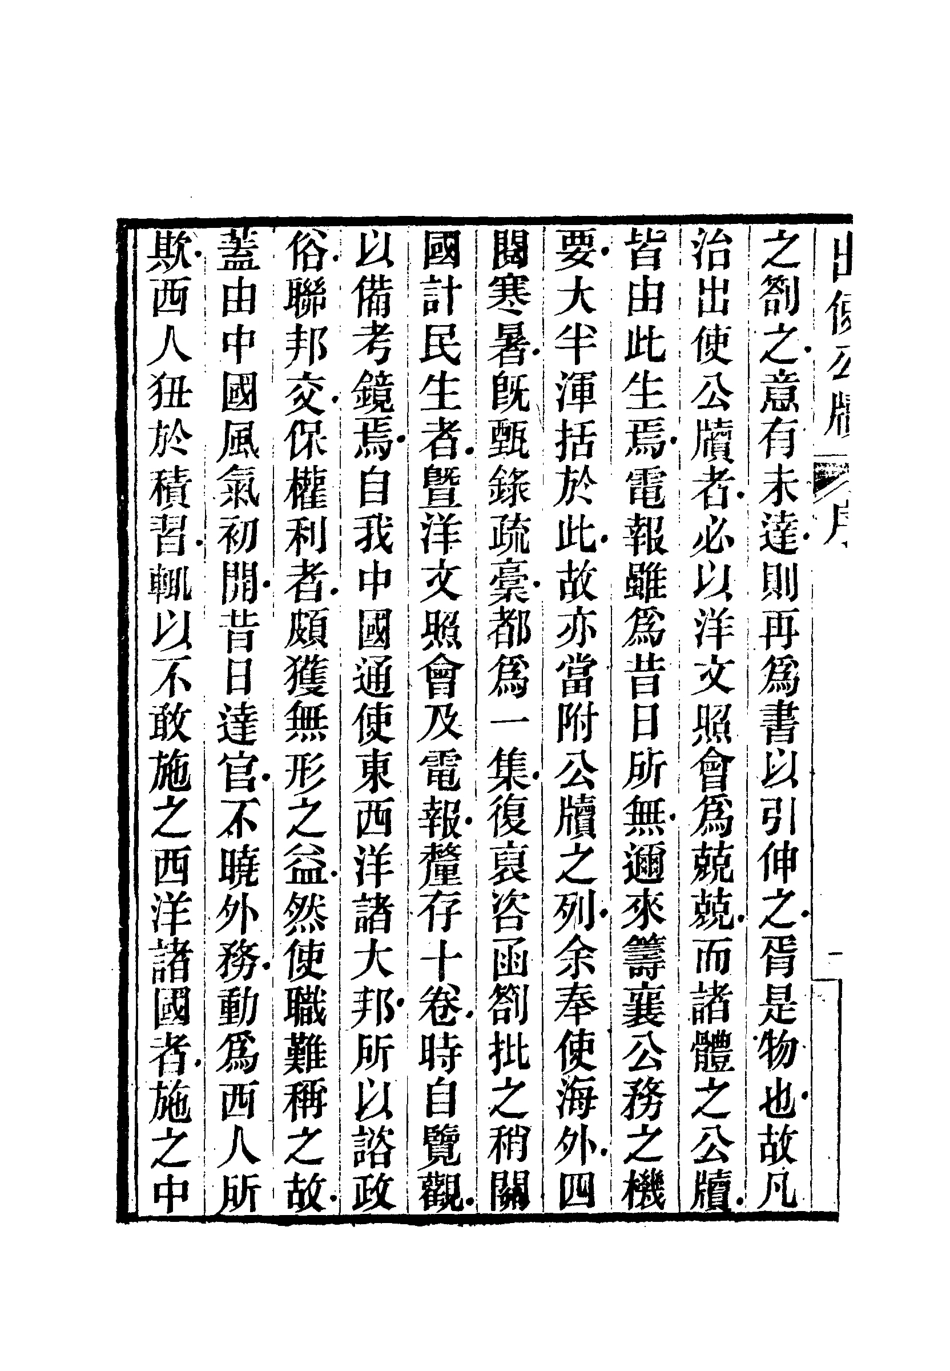 出使公牘 序 一
之劄之意有未達則再爲書以引伸之胥是物也故凡
治出使公牘者必以洋文照會爲兢兢而諸體之公牘
皆由此生焉電報雖爲昔日所無邇來籌襄公務之機
要大半渾括於此故亦當附公牘之列余奉使海外四
閱寒暑既甄錄疏稾都爲一集復裒咨函劄批之稍關
國計民生者曁洋文照會及電報釐存十卷時自覽觀
以備考鏡焉自我中國通使東西洋諸大邦所以諮政
俗聯邦交保權利者頗獲無形之益然使職難稱之故
蓋由中國風氣初開昔日達官不曉外務動爲西人所
欺西人狃於積習輒以不敢施之西洋諸國者施之中